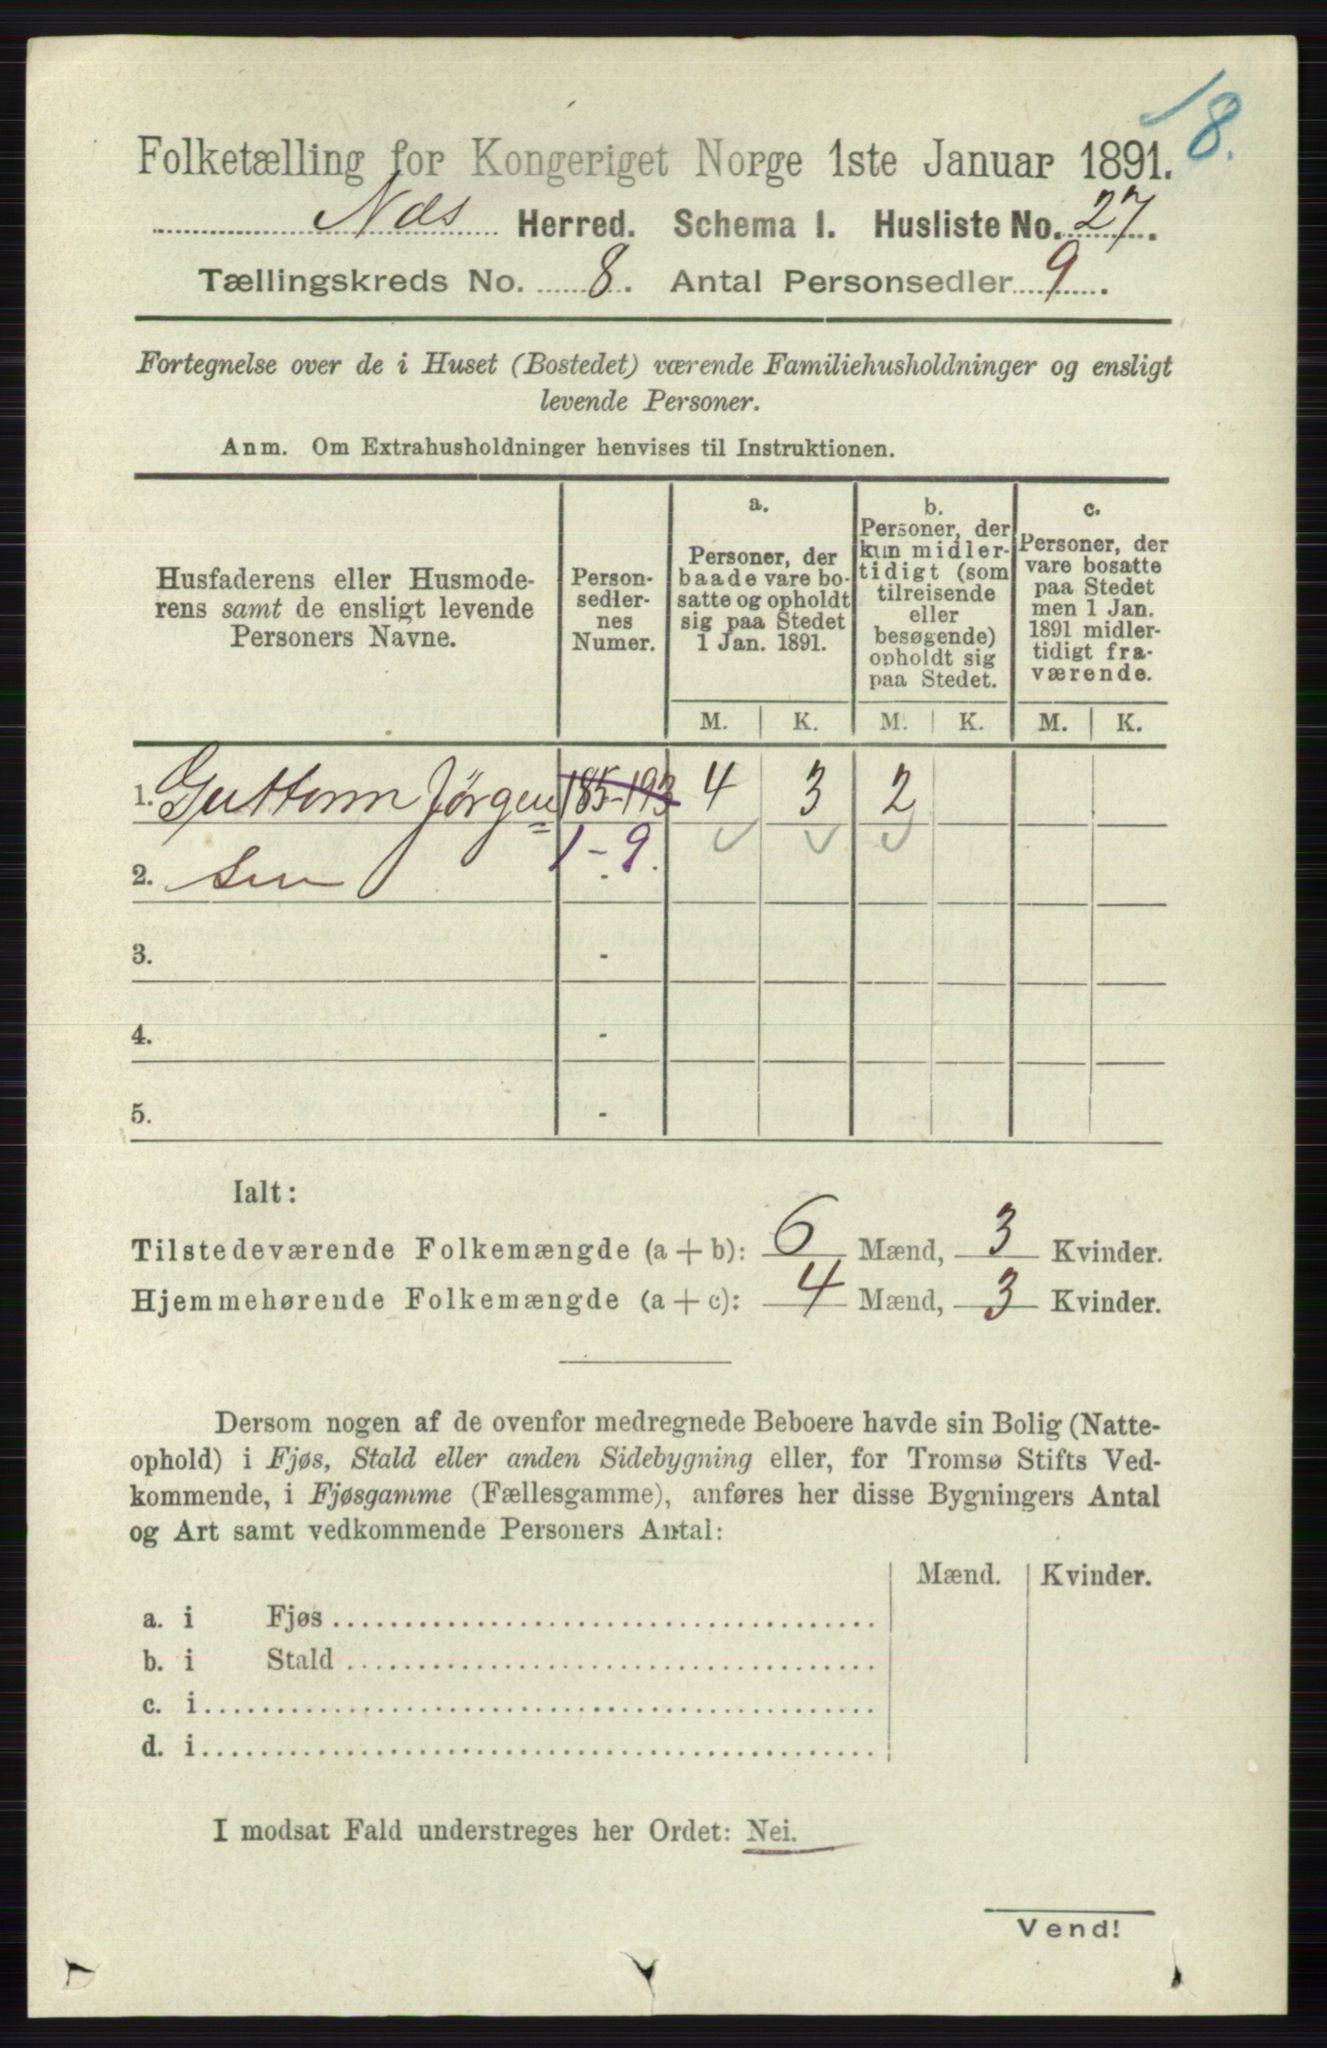 ✓8.
Folketælling for Kongeriget Norge 1ste Januar 1891.
Næs Herred. Schema I. Husliste No. 27.
Tællingskreds No. 8. Antal Personsedler 9.
Fortegnelse over de i Huset (Bostedet) værende Familiehusholdninger og ensligt
levende Personer.
Anm. Om Extrahusholdninger henvises til Instruktionen.
Husfaderens eller Husmode-
rens samt de ensligt levende
Personers Navne.
Person-
sedler-
nes
Numer.
a.
Personer, der
baade vare bo-
satte og opholdt
sig paa Stedet
1 Jan. 1891.
b.
Personer, der
kun midler-
tidigt (som
tilreisende
eller
besøgende)
opholdt sig
paa Stedet.
c.
Personer, der
vare bosatte
paa Stedet
men 1 Jan.
1891 midler-
tidigt fra-
værende.
M. K. M. K. M. K.
1. Guttorm Jørgen= 185-193 4 3 2
2. sen 1-9. ✓ ✓ ✓
3. -
4. -
5. -
Ialt:
Tilstedeværende Folkemængde (a + b): 6 Mænd, 3 Kvinder.
Hjemmehørende Folkemængde (a + c): 4 Mænd, 3 Kvinder.
Dersom nogen af de ovenfor medregnede Beboere havde sin Bolig (Natte-
ophold) i Fjøs, Stald eller anden Sidebygning eller, for Tromsø Stifts Ved-
kommende, i Fjøsgamme (Fællesgamme), anføres her disse Bygningers Antal
og Art samt vedkommende Personers Antal:
Mænd. Kvinder.
a. i Fjøs
b. i Stald
c. i
d. i
I modsat Fald understreges her Ordet: Nei.
Vend!